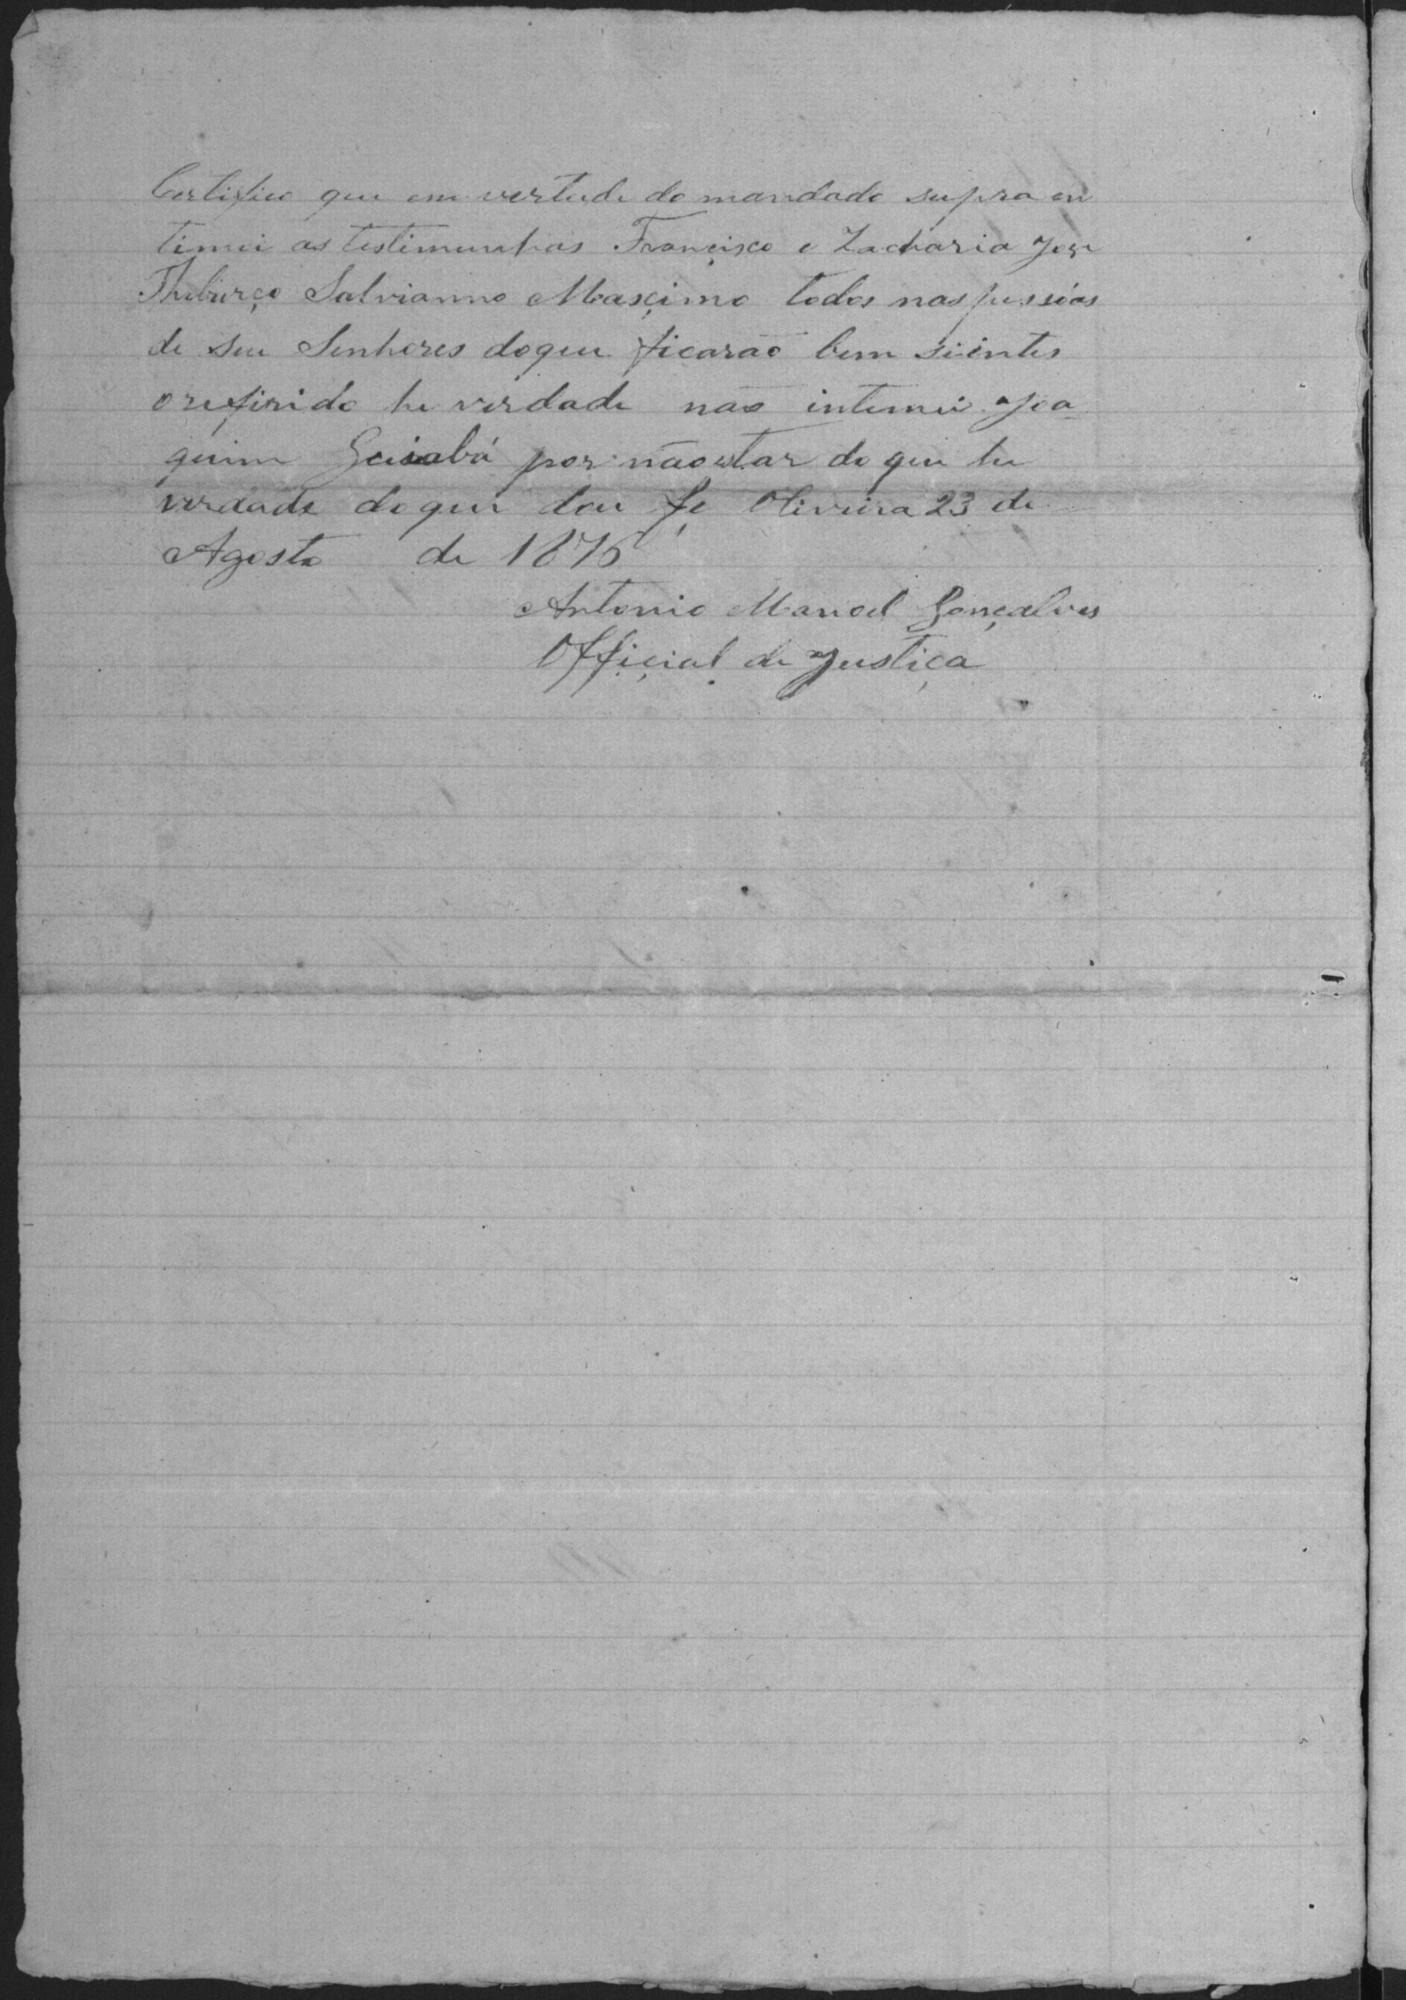 Certifico que em vertude do mandado supra en
timei as testimunhas Françisco e Zacharia Jose
Theburço Salvianno Masçimo todos nas pessôas
de seu Senhores doque ficarão bem sientes
o refirido he verdade não intemei Joa
quim Guiabá por não estar do que he
verdade do que dou fe Oliveira 23 de
Agosto de 1876
Antonio Manoel Gonçalves
Offiçial de Justiça